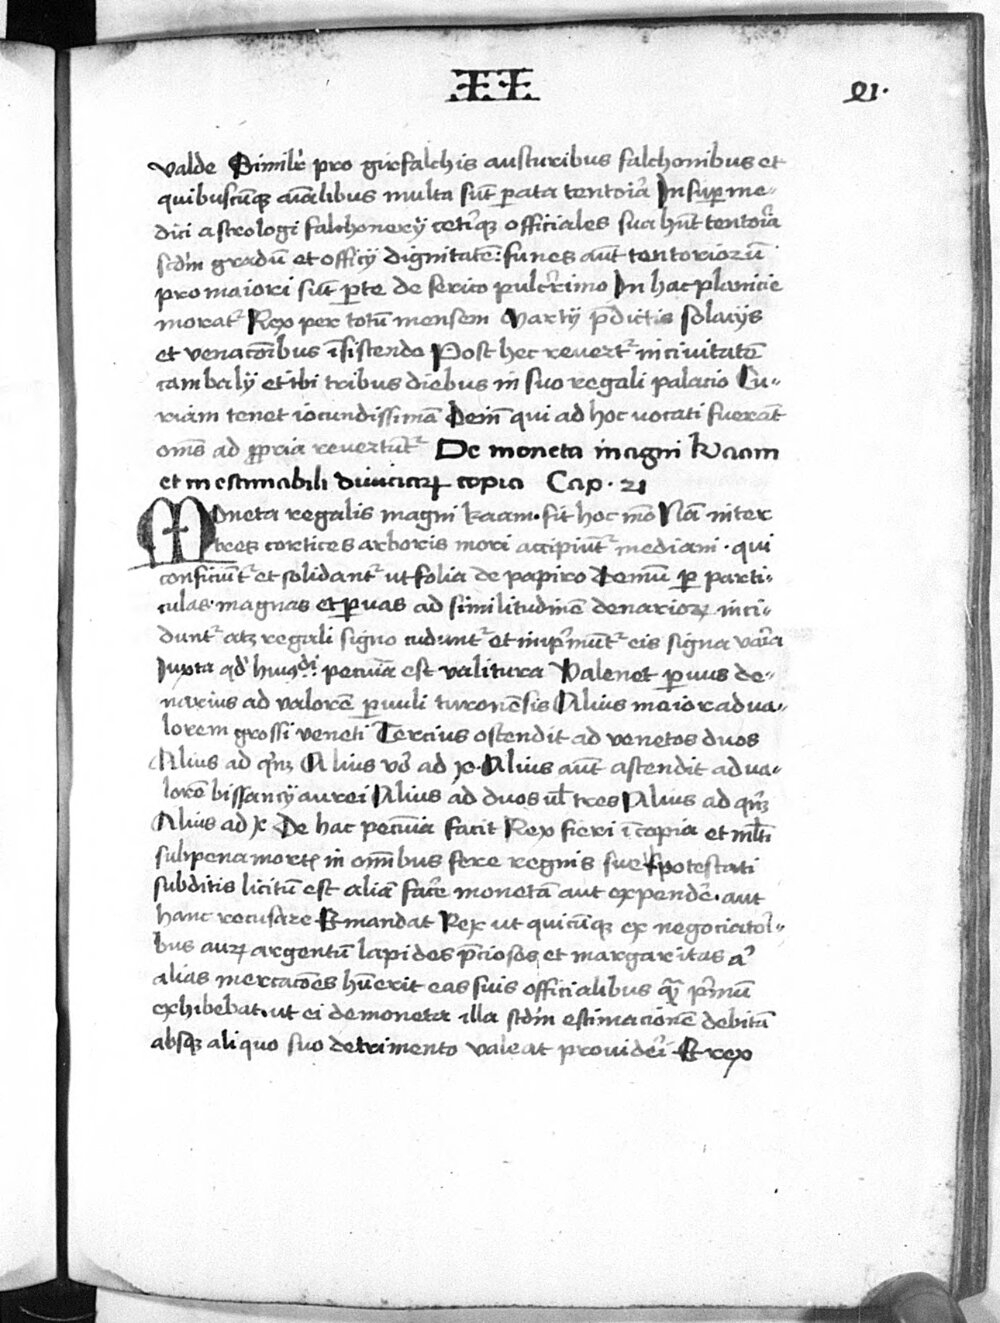 II
91.
valde Similr̄ pro girfalchis austuribus falchonibus et
quibuscūqꝫ aīalibus multa sūt pata tentoia Insuꝑ me-
dici astrologi falchonerij ceteiqꝫ officiales sua hn̄t tentoia
scd̄m gradū et officij dignitatē: funes aūt tentoriorū
pro maiori sūt ꝑte de serico pulcrimo In hac planicie
morat᷑ Rex per totū mensem Martij p̄dictis solacijs
et venacōibus īsistendo Post hec revertr̄ in civitatē
cambalij et ibi tribus diebus in suo regali palacio Cu-
riam tenet iocundissimā Dein̄ qui ad hoc vocati fuerāt
om̄s ad ꝓpria revertūt᷑ De moneta magni kaam
et inestimabili diviciaꝝ copia Cap. 21
Moneta regalis magni kaam. fit hoc mō Nā inter
tres cortices arboris mori accipiūt᷑ mediani. qui
conficiūt᷑ et solidant᷑ ut folia de papiro demū ꝑ parti-
culas magnas et ꝑvas ad similitudinē denarioꝝ inci-
dunt᷑ atqꝫ regali signo cudunt᷑ et imp̄mūt᷑ eis signa vaia
Iuxta qd̓ hiuꝰdi pecuīa est valitura Valenet ꝑvus de-
narius ad valorē ꝑvuli turonēsis Alius maior ad va-
lorem grossi veneti Tercius ostendit ad venetos duos
Alius ad qn̄qꝫ Alius vō ad x. Alius aūt ascendit ad va-
lorē bissancij aurei Alius ad duos ul̄ tres Alius ad qn̄qꝫ
Alius ad x De hac pecuīa facit Rex fieri ī copia et nl̄li
sub pena mortꝭ in om̄ibus fere regnis sue potestati
subditis licitū est aliā fac̄e monetā aut expendē. aut
hanc recusare Et mandat Rex ut quicūqꝫ ex negociatoi-
bus auꝝ argentū lapides p̄ciosos et margaritas aͨ
alias mercacōes hūerit eas suis officialibus qm̄ p̄mū
exhibebat. ut ei de moneta illa scd̄m estimacionē debitā
absqꝫ aliquo suo detrimento valeat providei Et rex